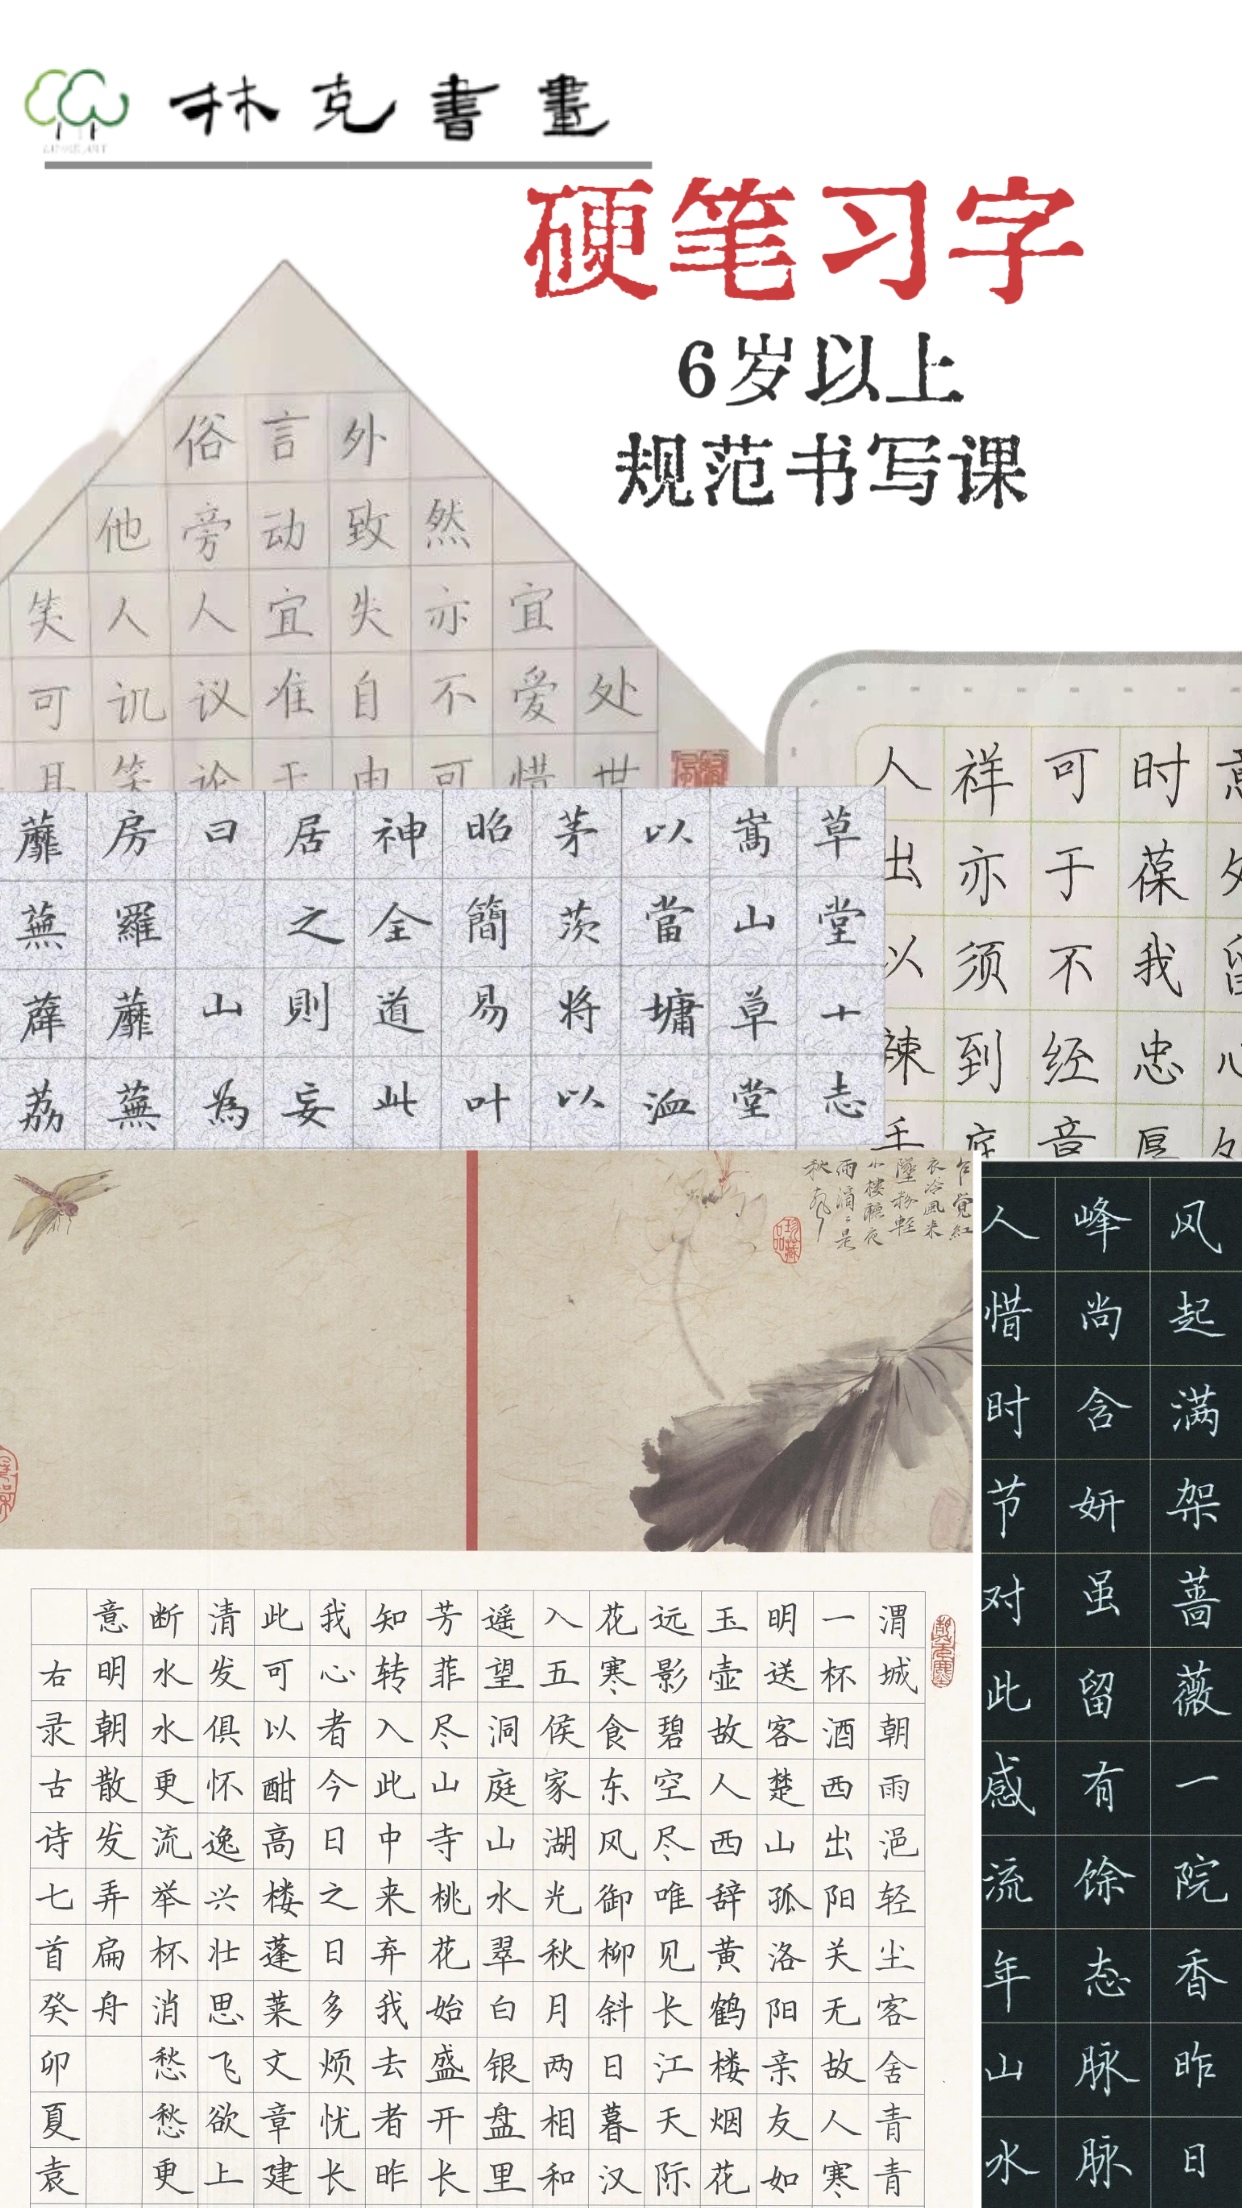 林克書畫
硬笔习字
6岁以上
规范书写课
处世
宜爱惜
然亦不可
外致失自由
言动宜准于
俗旁人议论
他人讥笑
笑可
时葆我忠厚
可于不经
祥亦须到底
人出以辣手
草堂十志
嵩山草堂
以當墉洫
茅茨将以
昭簡易叶
神全道此
居之則妄
曰山為
房羅蘼蕪
蘼蕪薜荔
乍覺紅
衣冷風来
墜粉輕
小樓聽夜
雨滴〻是
秋聲
珍藏品
风起满架蔷薇一院香昨日
峰尚含妍虽留有馀态脉脉
人惜时节对此感流年山水
渭城朝雨浥轻尘客舍青青
一杯酒西出阳关无故人寒
明送客楚山孤洛阳亲友如
玉壶故人西辞黄鹤楼烟花
远影碧空尽唯见长江天际
花寒食东风御柳斜日暮汉
入五侯家湖光秋月两相和
遥望洞庭山水翠白银盘里
芳菲尽山寺桃花始盛开长
知转入此中来弃我去者昨
我心者今日之日多烦忧长
此可以酣高楼蓬莱文章建
清发俱怀逸兴壮思飞欲上
断水水更流举杯消愁愁更
意明朝散发弄扁舟
右录古诗七首癸卯夏袁